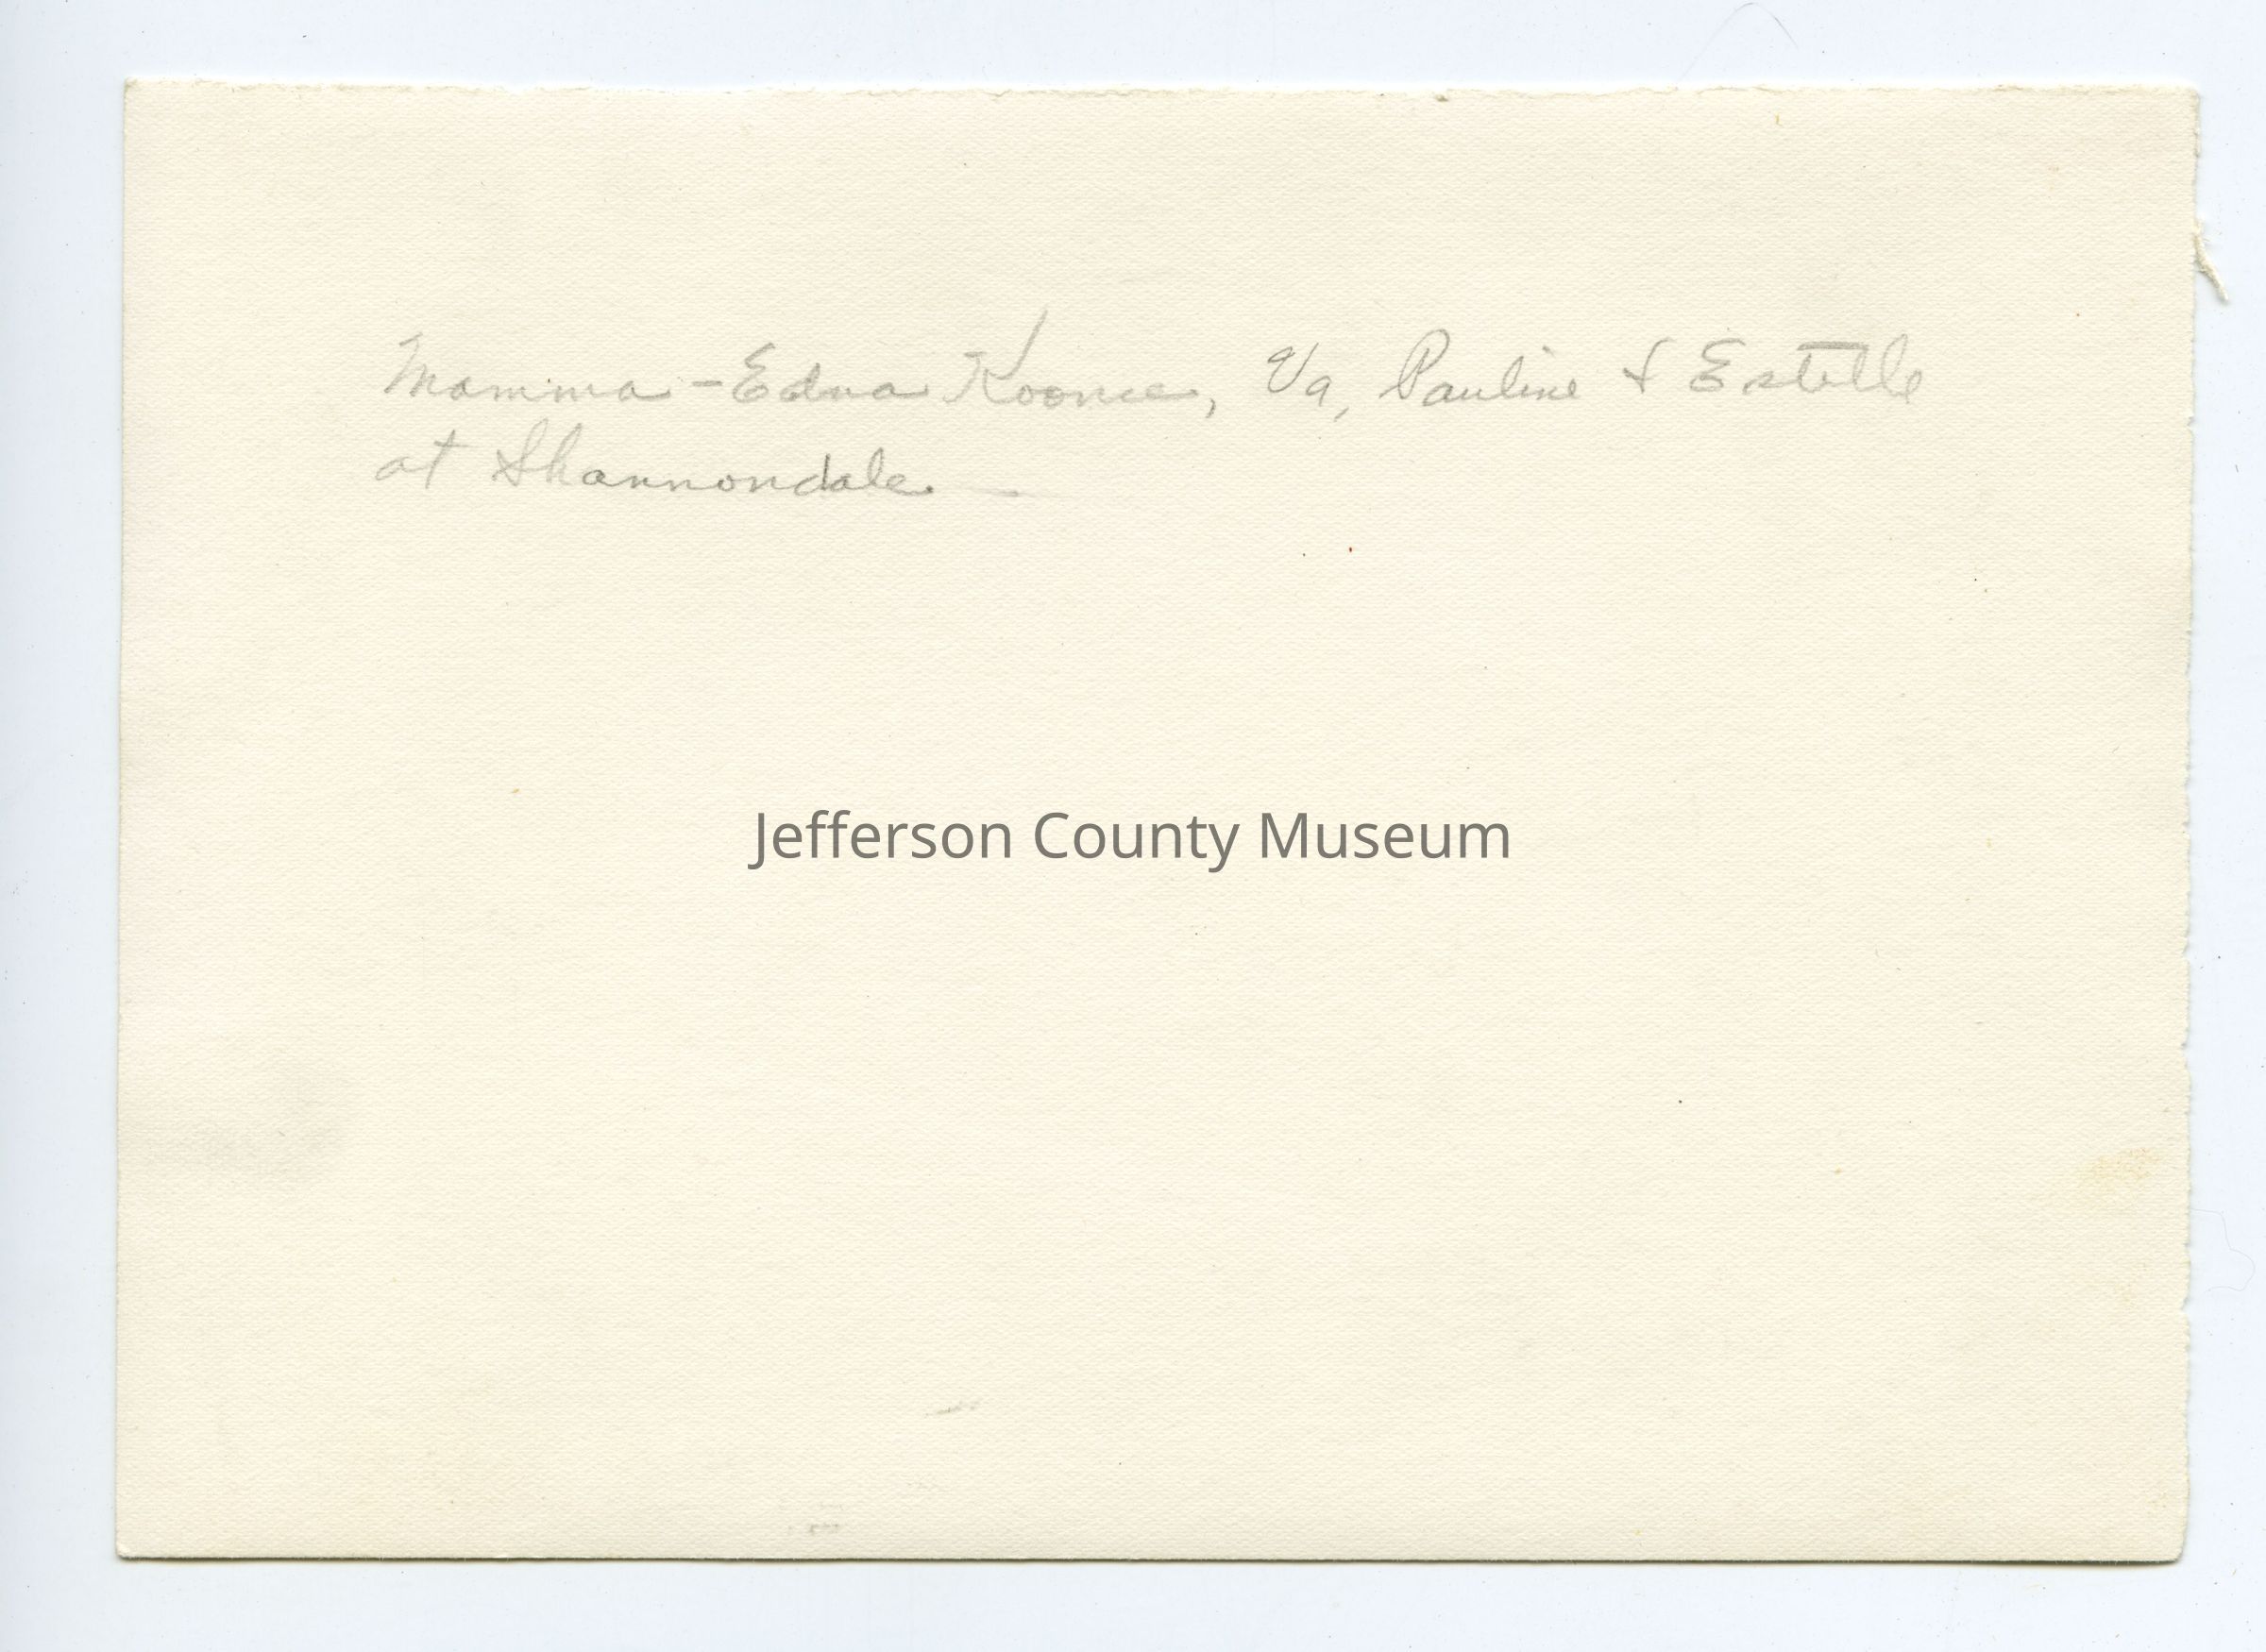 Mamma - Edna Koonce, Va, Pauline & Estelle
at Shannondale
Jefferson County Museum